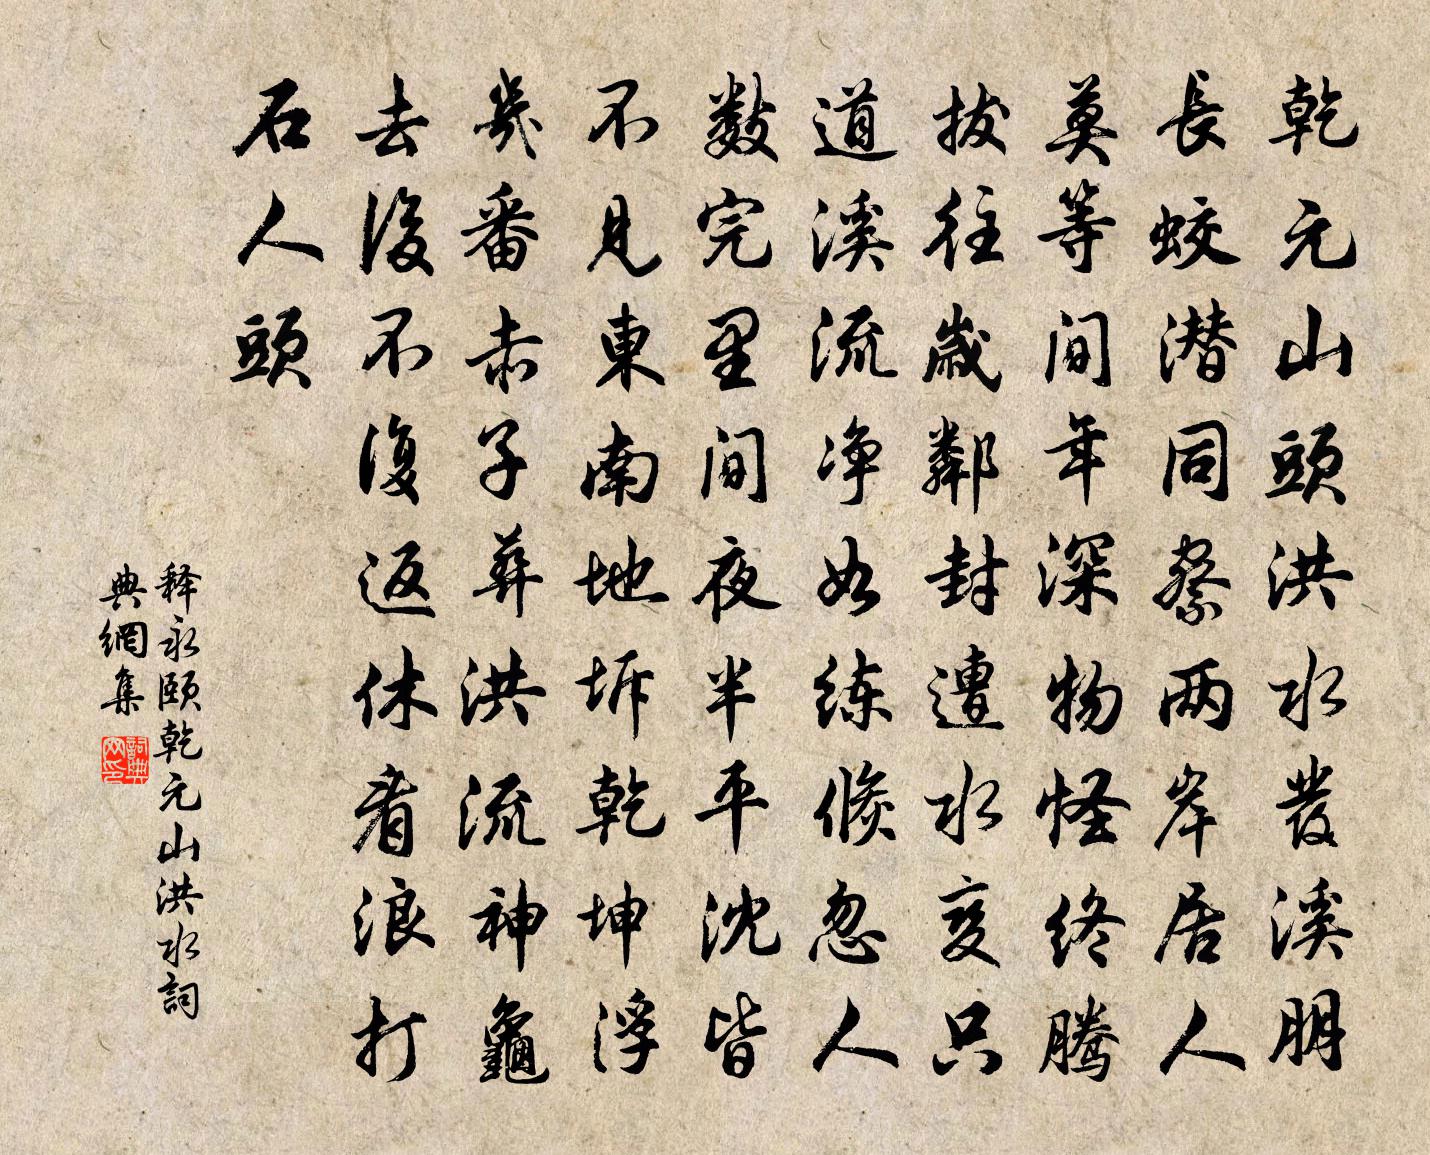 乾元山頭洪水發溪朋
長蛟潜同祭两岸居人
莫等间年深物怪终騰
拔往歲鄰封遭水变只
道溪流净如练倏忽人
數完里间夜半平沈皆
不見東南地坼乾坤浮
幾番赤子葬洪流神龜
去後不復返休看浪打
石人頭
释永颐乾元山洪水詞
典網集
詞典
网印